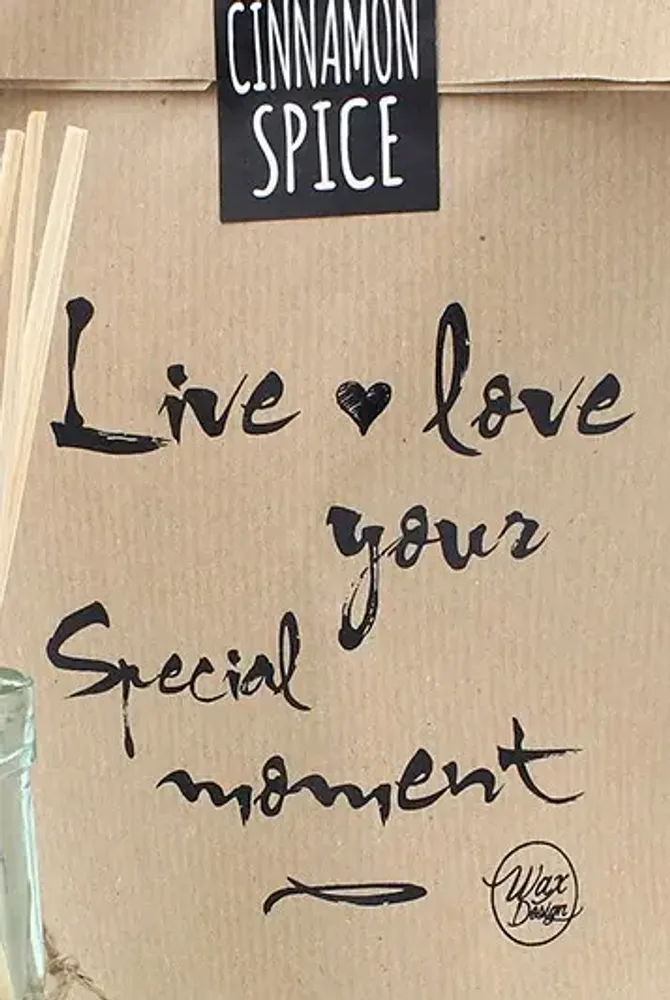 CINNAMON
SPICE
Live ♥ love
your
Special
moment
Wax
Design